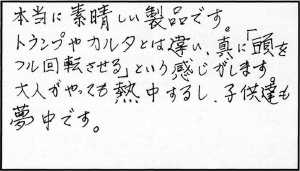 本当に素晴しい製品です。
トランプやカルタとは違い、真に「頭を
フル回転させる」という感じがします。
大人がやっても熱中するし、子供達も
夢中です。